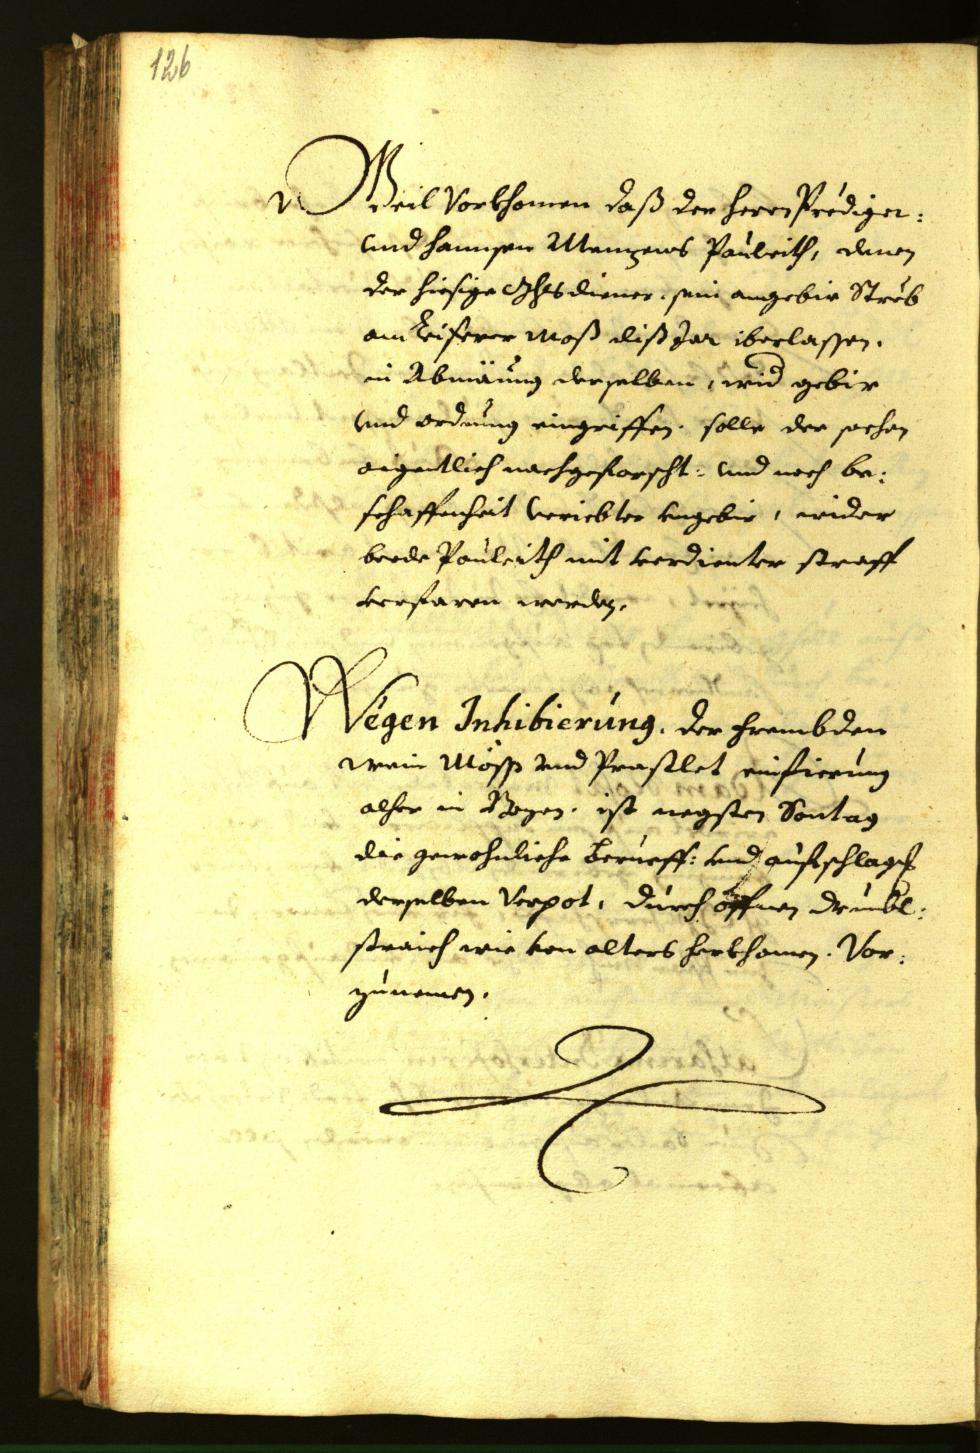 126
Weil Vorkhomen daß der Herrn Prediger:
und Hannsen Pauleith, denen
der hiesige Ghtsdiener. sein angebir Strëb
am Leiferer Moß diß Jar iberlassen.
in Abmäung derselben, wid gebir
und ordnung eingriffen. solle der sachen
aigentlich nachgeforscht: und nach be:
schaffenheit veriebter ungebir, wider
beede Pauleith mit verdienter straff
verfaren werden.
Wegen Inhibierung. der frembden
wein Mösst und Prastlet einfierung
alher in Bozen. ist negsten Sontag
die gewohnliche Berueff: und aufschlagß
derselben Verpot, durch öffnen Drumbl:
straich wie von alters herkhomen. Vor:
zunemen.